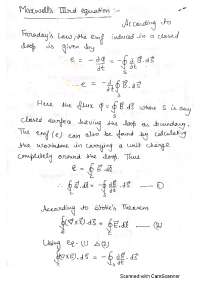 Maxwell's Third equation:-
According to
Faraday's Law, the emf induced in a closed
loop is given by
e = -dφ/dt = -∮_S d/dt B⃗.dS⃗
e = -d/dt ∮_S B⃗.dS⃗
Here the flux φ = ∮_S B⃗.dS⃗ where S is any
closed surface having the loop as boundary.
The emf (e) can also be found by calculating
the workdone in carrying a unit charge
completely around the loop. Thus
e = ∮_L E⃗.dl⃗
∴ ∮_L E⃗.dl⃗ = -∮_S dB⃗/dt.dS⃗ — ①
According to Stoke's Theorem
∮_S (∇×E⃗).dS⃗ = ∮_L E⃗.dl⃗ — (2)
Using Eq. (1) & (2)
∮_S (∇×E⃗).dS⃗ = -∮_S dB⃗/dt.dS⃗
Scanned with CamScanner